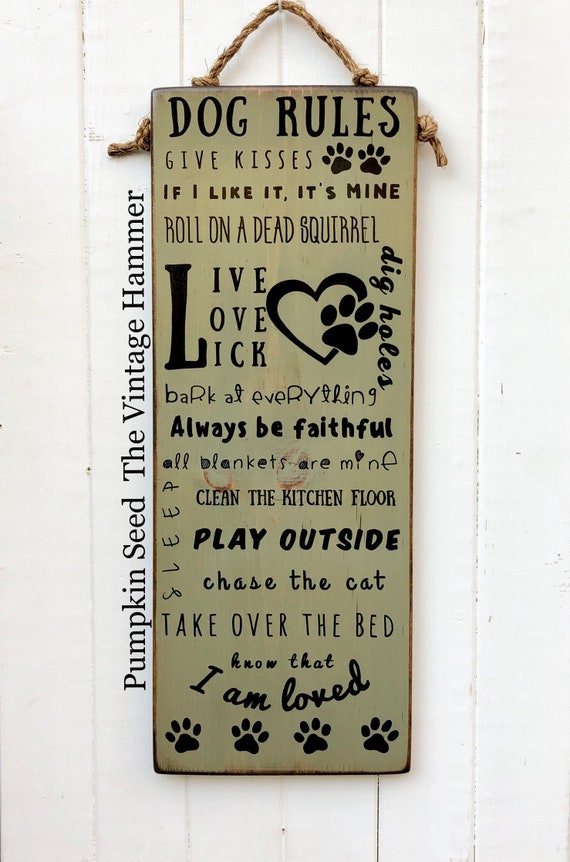 DOG RULES
GIVE KISSES
IF I LIKE IT, IT'S MINE
ROLL ON A DEAD SQUIRREL
LIVE
LOVE
LICK
dig holes
baRk at eveRything
Always be faithful
all blankets are mine
CLEAN THE KITCHEN FLOOR
SLEEP
PLAY OUTSIDE
chase the cat
TAKE OVER THE BED
know that
I am loved
Pumpkin Seed The Vintage Hammer